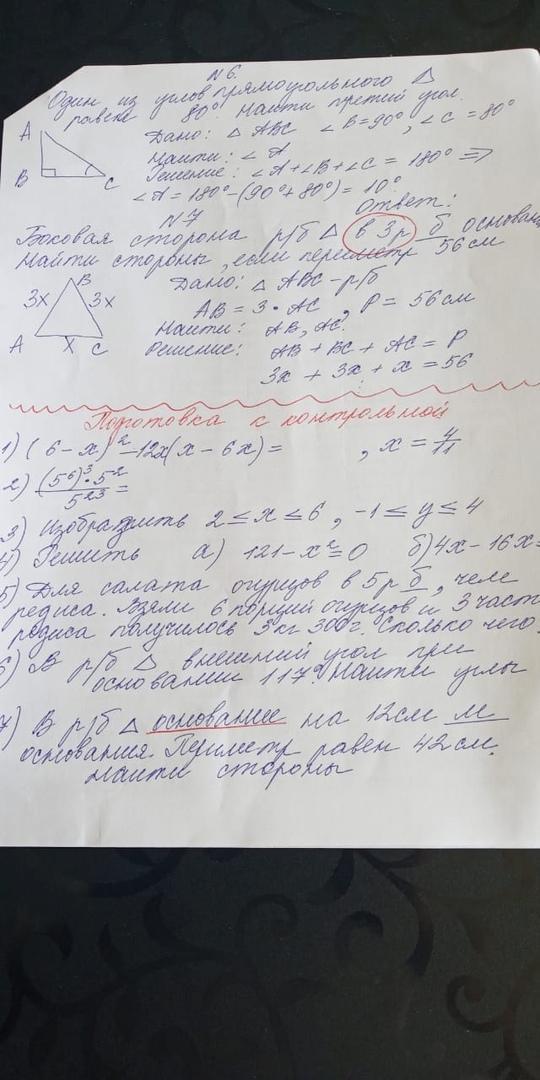 N 6.
Один из углов прямоугольного △
равен 80°. Найти третий угол.
A
B
C
Дано: △ ABC ∠B=90°, ∠C = 80°
Найти: ∠A
Решение: ∠A+∠B+∠C = 180° =>
∠A = 180°-(90°+80°) = 10°
Ответ:
N 7
Боковая сторона р/б △ в 3р б основан
Найти стороны, если периметр 56 см
B
3x 3x
A x C
Дано: △ ABC - р/б
AB = 3 · AC, P = 56 см
Найти: AB, AC.
Решение: AB + BC + AC = P
3x + 3x + x = 56
Подготовка к контрольной
1) (6-x)² -12x(x - 6x) = , x = 4/11
2) (5⁶)³ · 5² / 5²³ =
3) Изобразить 2 ≤ x ≤ 6, -1 ≤ y ≤ 4
4) Решить а) 121-x² = 0 б) 4x - 16x=
5) Для салата огурцов в 5р б, чем
редиса. Взяли 6 порций огурцов и 3 част
редиса получилось 3 кг 300г. Сколько чего.
6) В р/б △ внешний угол при
основании 117°. Найти углы
7) В р/б △ основание на 12 см м
основания. Периметр равен 42 см.
Найти стороны